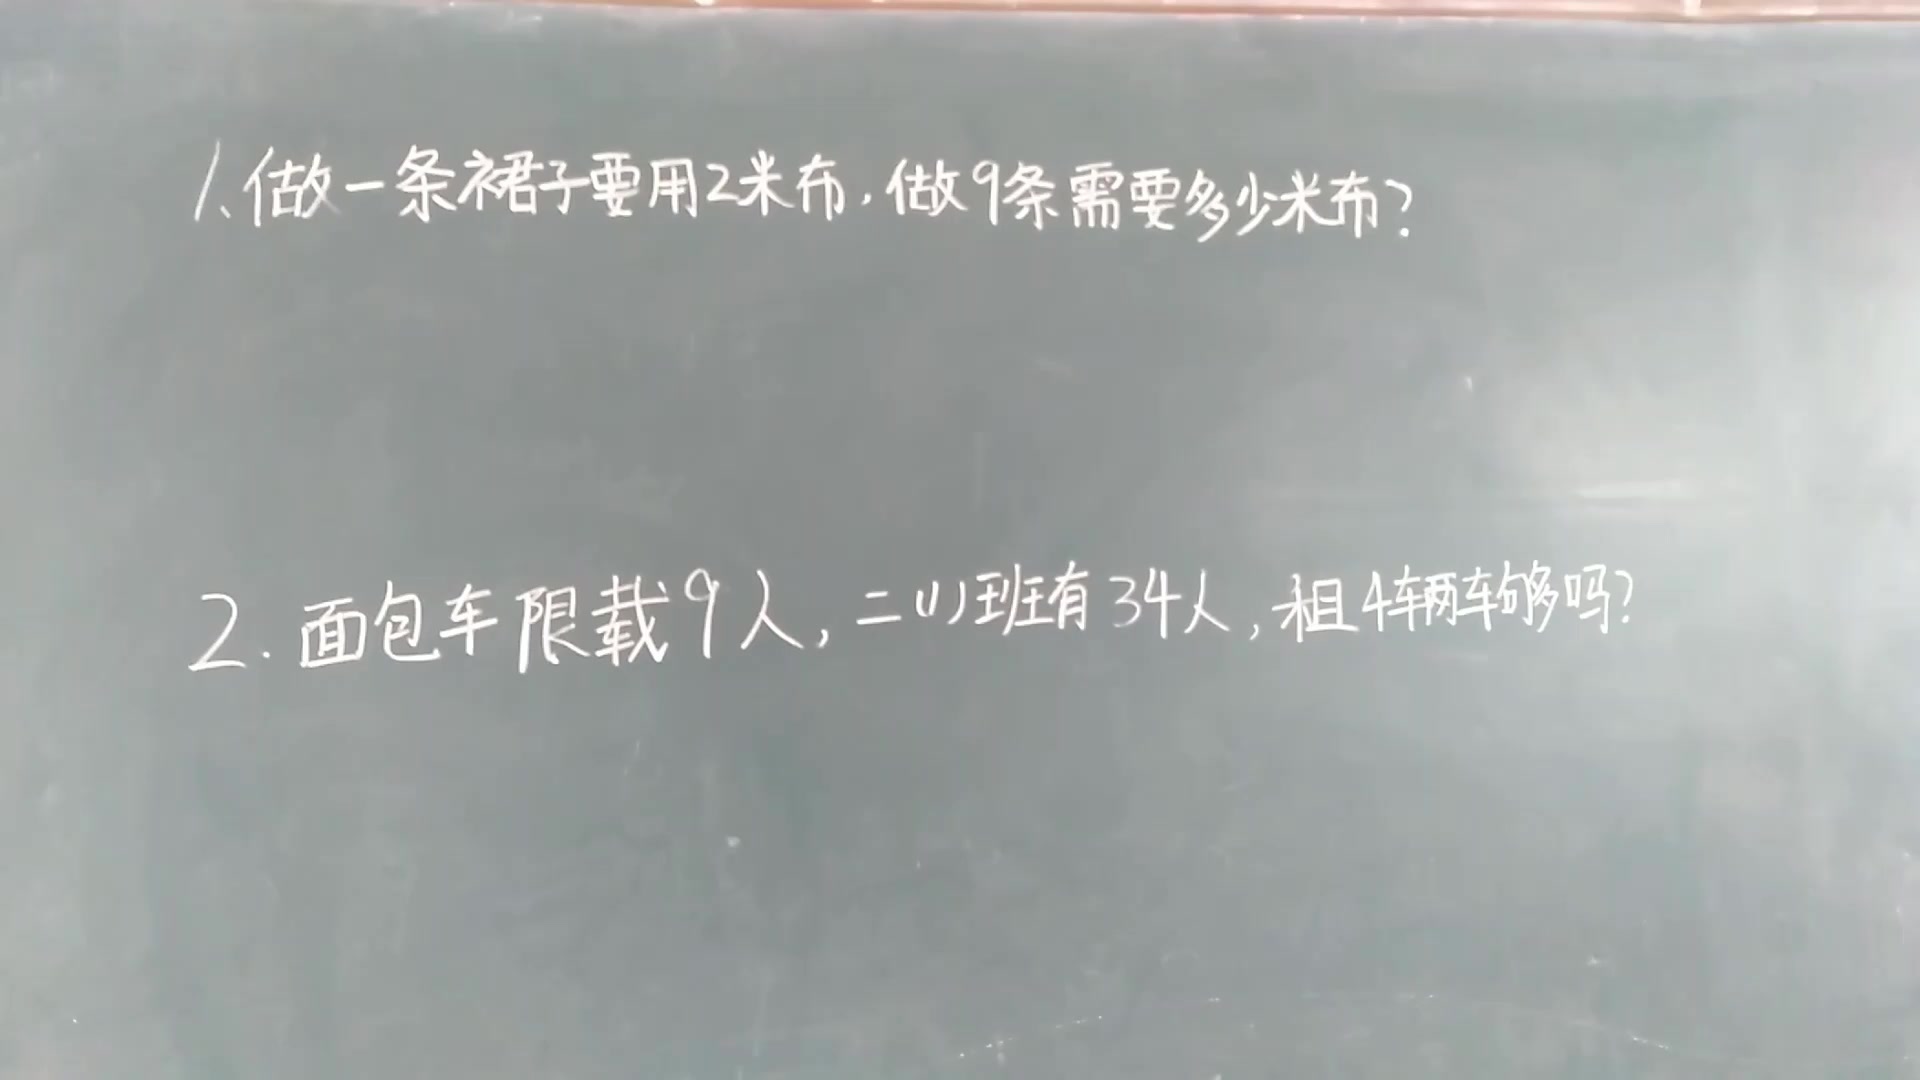 1、做一条裙子要用2米布，做9条需要多少米布？
2.面包车限载9人，二(1)班有34人，租4辆车够吗？